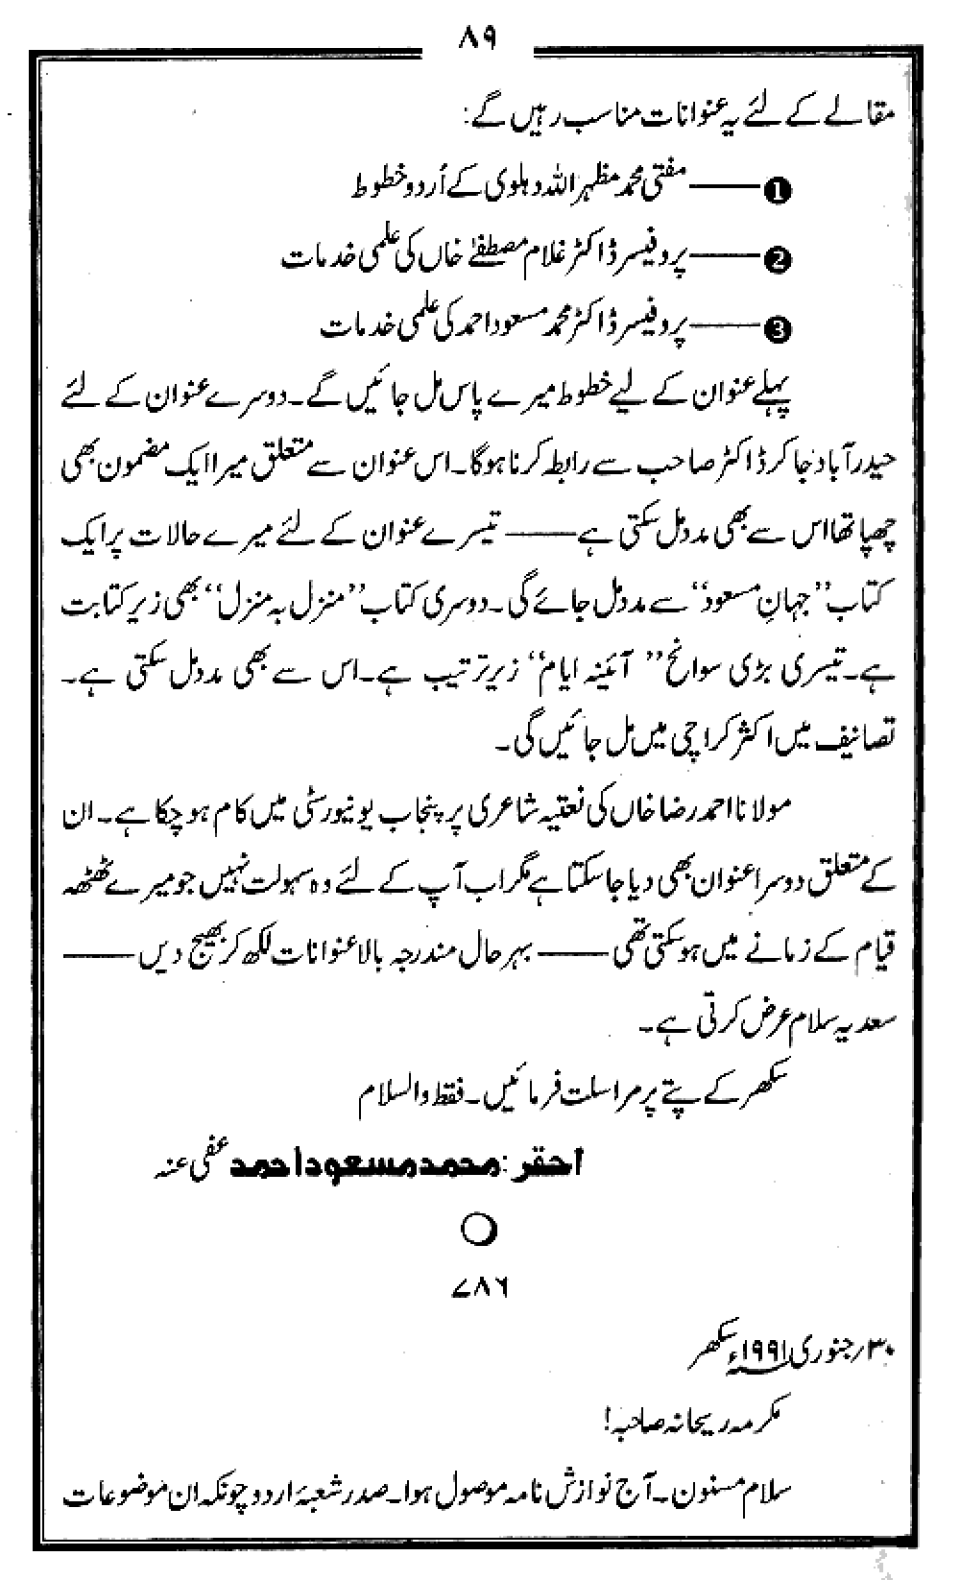 ۸۹
مقالے کے لئے یہ عنوانات مناسب رہیں گے:
❶——مفتی محمد مظہر اللہ دہلوی کے اُردو خطوط
❷——پروفیسر ڈاکٹر غلام مصطفےٰ خاں کی علمی خدمات
❸——پروفیسر ڈاکٹر محمد مسعود احمد کی علمی خدمات
پہلے عنوان کے لیے خطوط میرے پاس مل جائیں گے۔ دوسرے عنوان کے لئے
حیدرآباد جا کر ڈاکٹر صاحب سے رابطہ کرنا ہوگا۔ اس عنوان سے متعلق میرا ایک مضمون بھی
چھپا تھا اس سے بھی مدد مل سکتی ہے —— تیسرے عنوان کے لئے میرے حالات پر ایک
کتاب ”جہانِ مسعود“ سے مدد مل جائے گی۔ دوسری کتاب ”منزل بہ منزل“ بھی زیر کتابت
ہے۔ تیسری بڑی سوانح ”آئینہ ایام“ زیر ترتیب ہے۔ اس سے بھی مدد مل سکتی ہے۔
تصانیف میں اکثر کراچی میں مل جائیں گی۔
مولانا احمد رضا خاں کی نعتیہ شاعری پر پنجاب یونیورسٹی میں کام ہو چکا ہے۔ ان
کے متعلق دوسرا عنوان بھی دیا جا سکتا ہے مگر اب آپ کے لئے وہ سہولت نہیں جو میرے ٹھٹھہ
قیام کے زمانے میں ہو سکتی تھی —— بہر حال مندرجہ بالا عنوانات لکھ کر بھیج دیں ——
سعدیہ سلام عرض کرتی ہے۔
سکھر کے پتے پر مراسلت فرمائیں۔ فقط والسلام
احقر: محمد مسعود احمد عفی عنہ
۷۸۶
۳۰؍جنوری ۱۹۹۱ء سکھر
مکرمہ ریحانہ صاحبہ!
سلام مسنون۔ آج نوازش نامہ موصول ہوا۔ صدر شعبۂ اردو چونکہ ان موضوعات